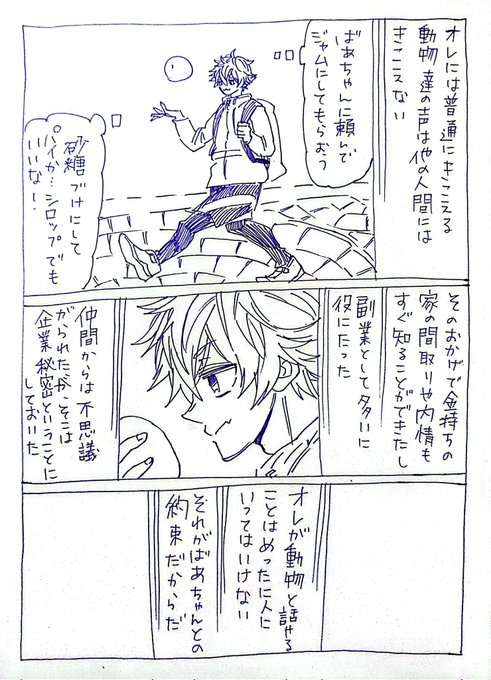 オレには普通にきこえる
動物達の声は他の人間には
きこえない
ばあちゃんに頼んで
ジャムにしてもらおう
砂糖づけにして
パイか…シロップでも
いいな!
そのおかげで金持ちの
家の間取りや内情も
すぐ知ることができたし
副業として多いに
役にたった
仲間からは不思議
がられたが、そこは
企業秘密ということに
しておいた
オレが動物と話せる
ことはめったに人に
いってはいけない
それがばあちゃんとの
約束だからだ